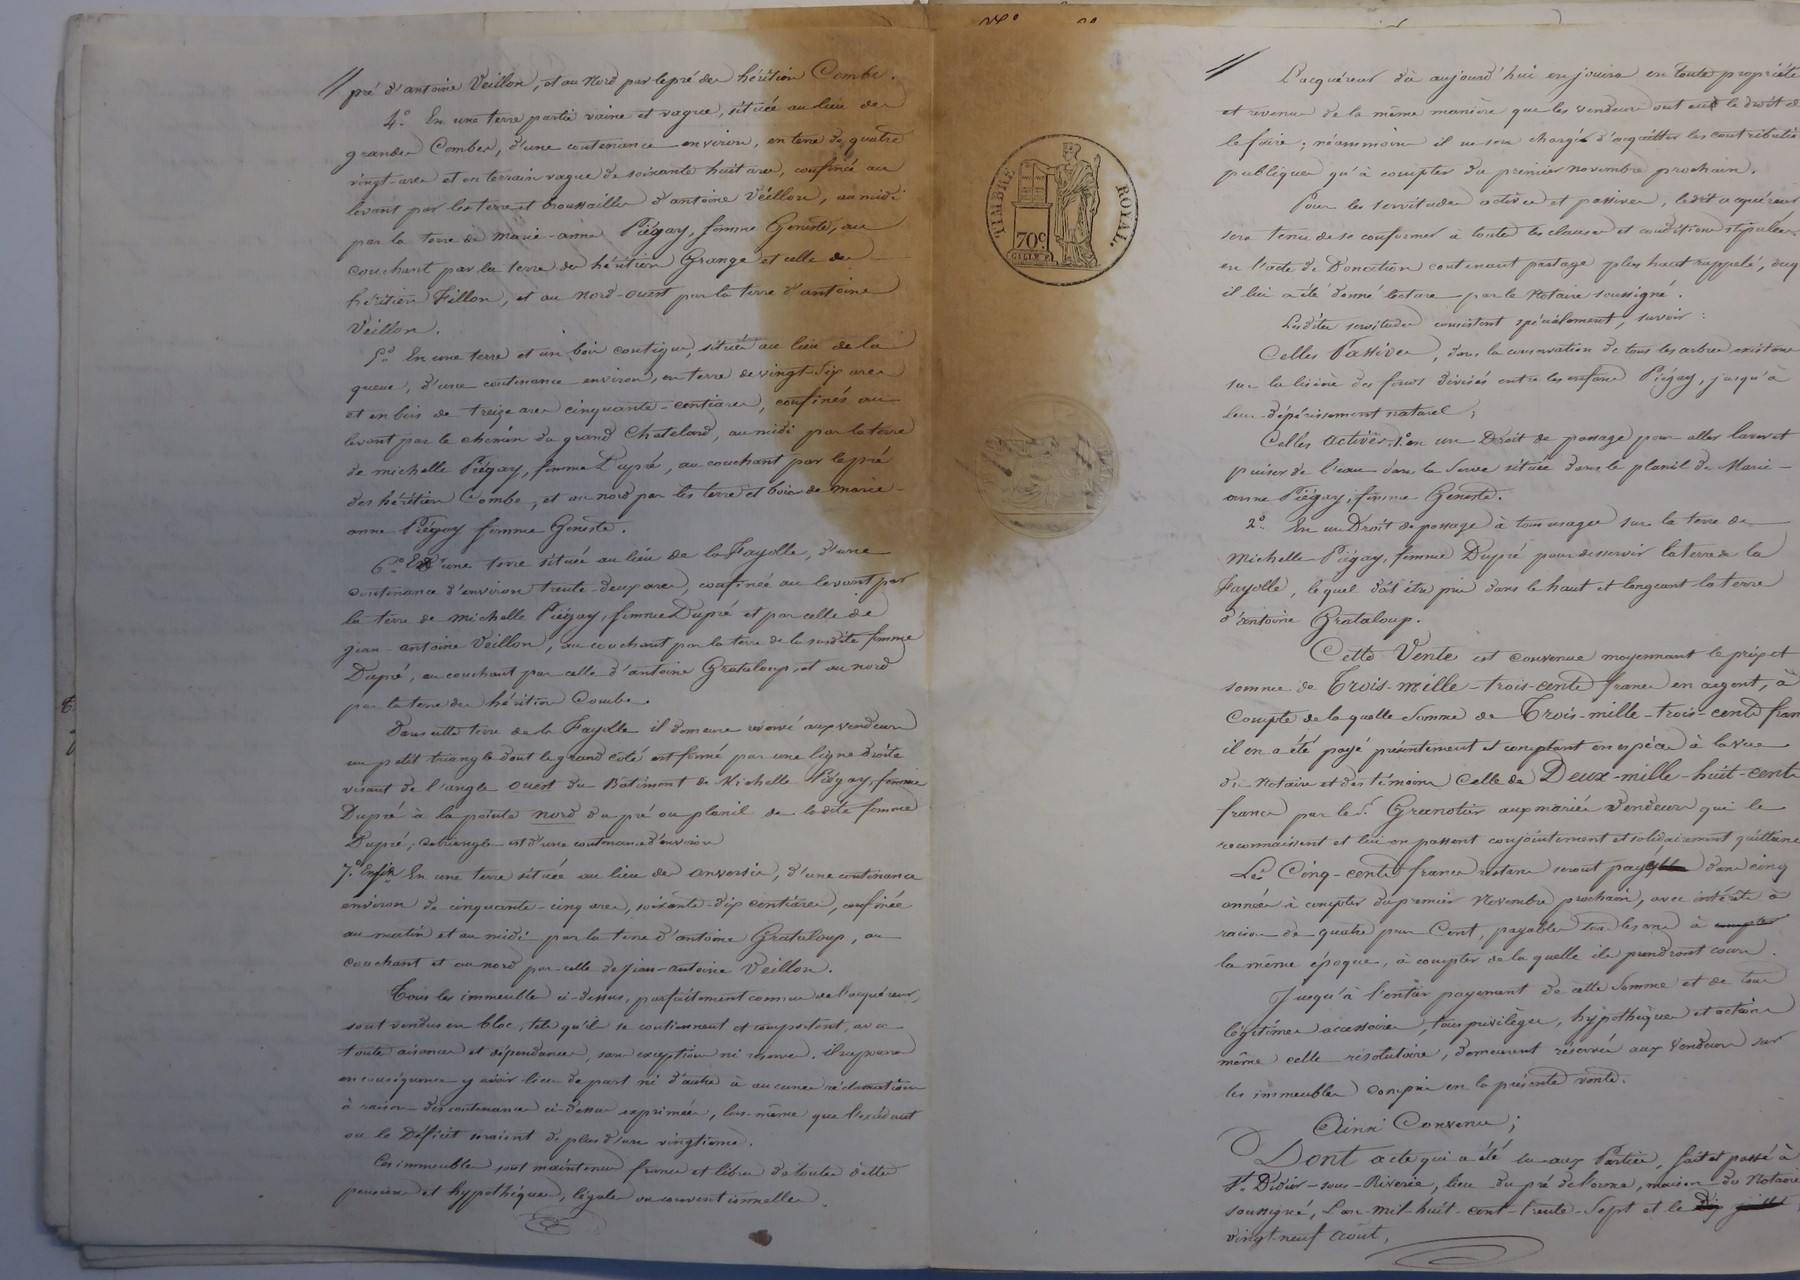 pré d'antoine Veillon, et au Nord par le pré des héritiers Combe.
4.° En une terre partie vaine et vague, située au lieu des
grandes Combes, d'une contenance environ, en terre de quatre
vingt-ares et en terrain vague de soixante huit ares, confinée au
levant par les terre et broussailles d'antoine Veillon, au midi
par la terre de marie-anne Piégay, femme Geneste, au
couchant par la terre des héritiers Grange et celle des
héritiers Fillon, et au Nord-ouest par la terre d'antoine
Veillon.
5.° En une terre et un bois contigus, située au lieu de la
queue, d'une contenance environ, en terre de vingt-six ares
et en bois de treize ares cinquante-centiares, confinés au
levant par le chemin du grand Chatelard, au midi par la terre
de michelle Piégay, femme Dupré, au couchant par le pré
des héritiers Combe, et au nord par les terre et bois de marie-
anne Piégay femme Geneste.
6.° D'une terre située au lieu de la Fayolle, d'une
contenance d'environ trente-deux ares, confinée au levant par
la terre de michelle Piégay, femme Dupré et par celle de
jean-antoine Veillon, au couchant par la terre de la susdite femme
Dupré, au couchant par celle d'antoine Grataloup, et au nord
par la terre des héritiers Combe.
Dans cette terre de la Fayolle il demeure réservé aux vendeurs
un petit triangle dont le grand côté est formé par une ligne droite
visant de l'angle ouest du Bâtiment de Michelle Piégay, femme
Dupré à la pointe nord du pré ou planil de ladite femme
Dupré; ce triangle est d'une contenance d'environ
7.° Enfin En une terre située au lieu de anversin, d'une contenance
environ de cinquante-cinq ares, soixante-dix centiares, confinée
au matin et au midi par la terre d'antoine Grataloup, au
couchant et au nord par celle de Jean-antoine Veillon.
Tous les immeubles ci-dessus, parfaitement connus de l'acquéreur,
sont vendus en bloc, tels qu'ils se contiennent et comportent, avec
toute aisances et dépendances, sans exception ni réserve. il ne pourra
en conséquence y avoir lieu de part ni d'autre à aucune réclamation
à raison des contenances ci-dessus exprimées, lors-même que l'excédant
ou le Déficit seraient de plus d'un vingtième.
Ces immeubles sont maintenus francs et libres de toutes dettes
pensions et hypothèques, légales ou conventionnelles.
TIMBRE ROYAL
70c
L'acquéreur dès aujourd'hui en jouira en toute propriété
et revenus de la même manière que les vendeurs ont eu le droit de
le faire; néanmoins il ne sera chargé d'acquitter les contributio
publiques qu'à compter du premier novembre prochain.
Pour les servitudes actives et passives, ledit acquéreur
sera tenu de se conformer à toute les clauses et conditions stipulées
en l'acte de Donation contenant partage plus haut rappelé, duq
il lui a été donné lecture par le Notaire soussigné.
Lesdites servitudes consistent spécialement, savoir:
Celles Passives, dans la conservation de tous les arbres existans
sur la lisière des fonds divisés entre les enfans Piégay, jusqu'à
leur dépérissement naturel;
Celles actives, 1.° en un Droit de passage pour aller laver et
puiser de l'eau dans la serve située dans le planil de Marie-
anne Piégay, femme Geneste.
2.° En un Droit de passage à tous usages sur la terre de
Michelle Piégay, femme Dupré pour desservir la terre de la
Fayolle, lequel doit être pris dans le haut et longeant la terre
d'antoine Grataloup.
Cette Vente est convenue moyennant le prix et
somme de Trois-mille-trois-cents francs en argent, à
Compte de laquelle Somme de Trois-mille-trois-cents fran
il en a été payé présentement et comptant en espèces à la vue
du Notaire et des témoins Celle de Deux-mille-huit-cents
francs par le S.r Grenotier aux mariés Vendeurs qui le
reconnaissent et lui en passent conjointement et solidairement quittance
Les Cinq-cents francs restans seront payés dans cinq
années à compter du premier Novembre prochain, avec intérêts à
raison de quatre pour Cent, payables tous les ans à compter
la même époque, à compter de laquelle ils prendront cours.
Jusqu'à l'entier payement de cette Somme et de tous
légitimes accessoires, tous privilèges, hypothèques et actions
même celle résolutoire, demeurent réservés aux Vendeurs sur
les immeubles compris en la présente vente.
Ainsi Convenu;
Dont acte qui a été lu aux Parties, fait et passé à
S.t Didier-sous-Riverie, lieu du pré de l'orme, maison du Notaire
soussigné, L'an mil-huit-cent-trente-Sept et le dix juillet
vingt-neuf août,